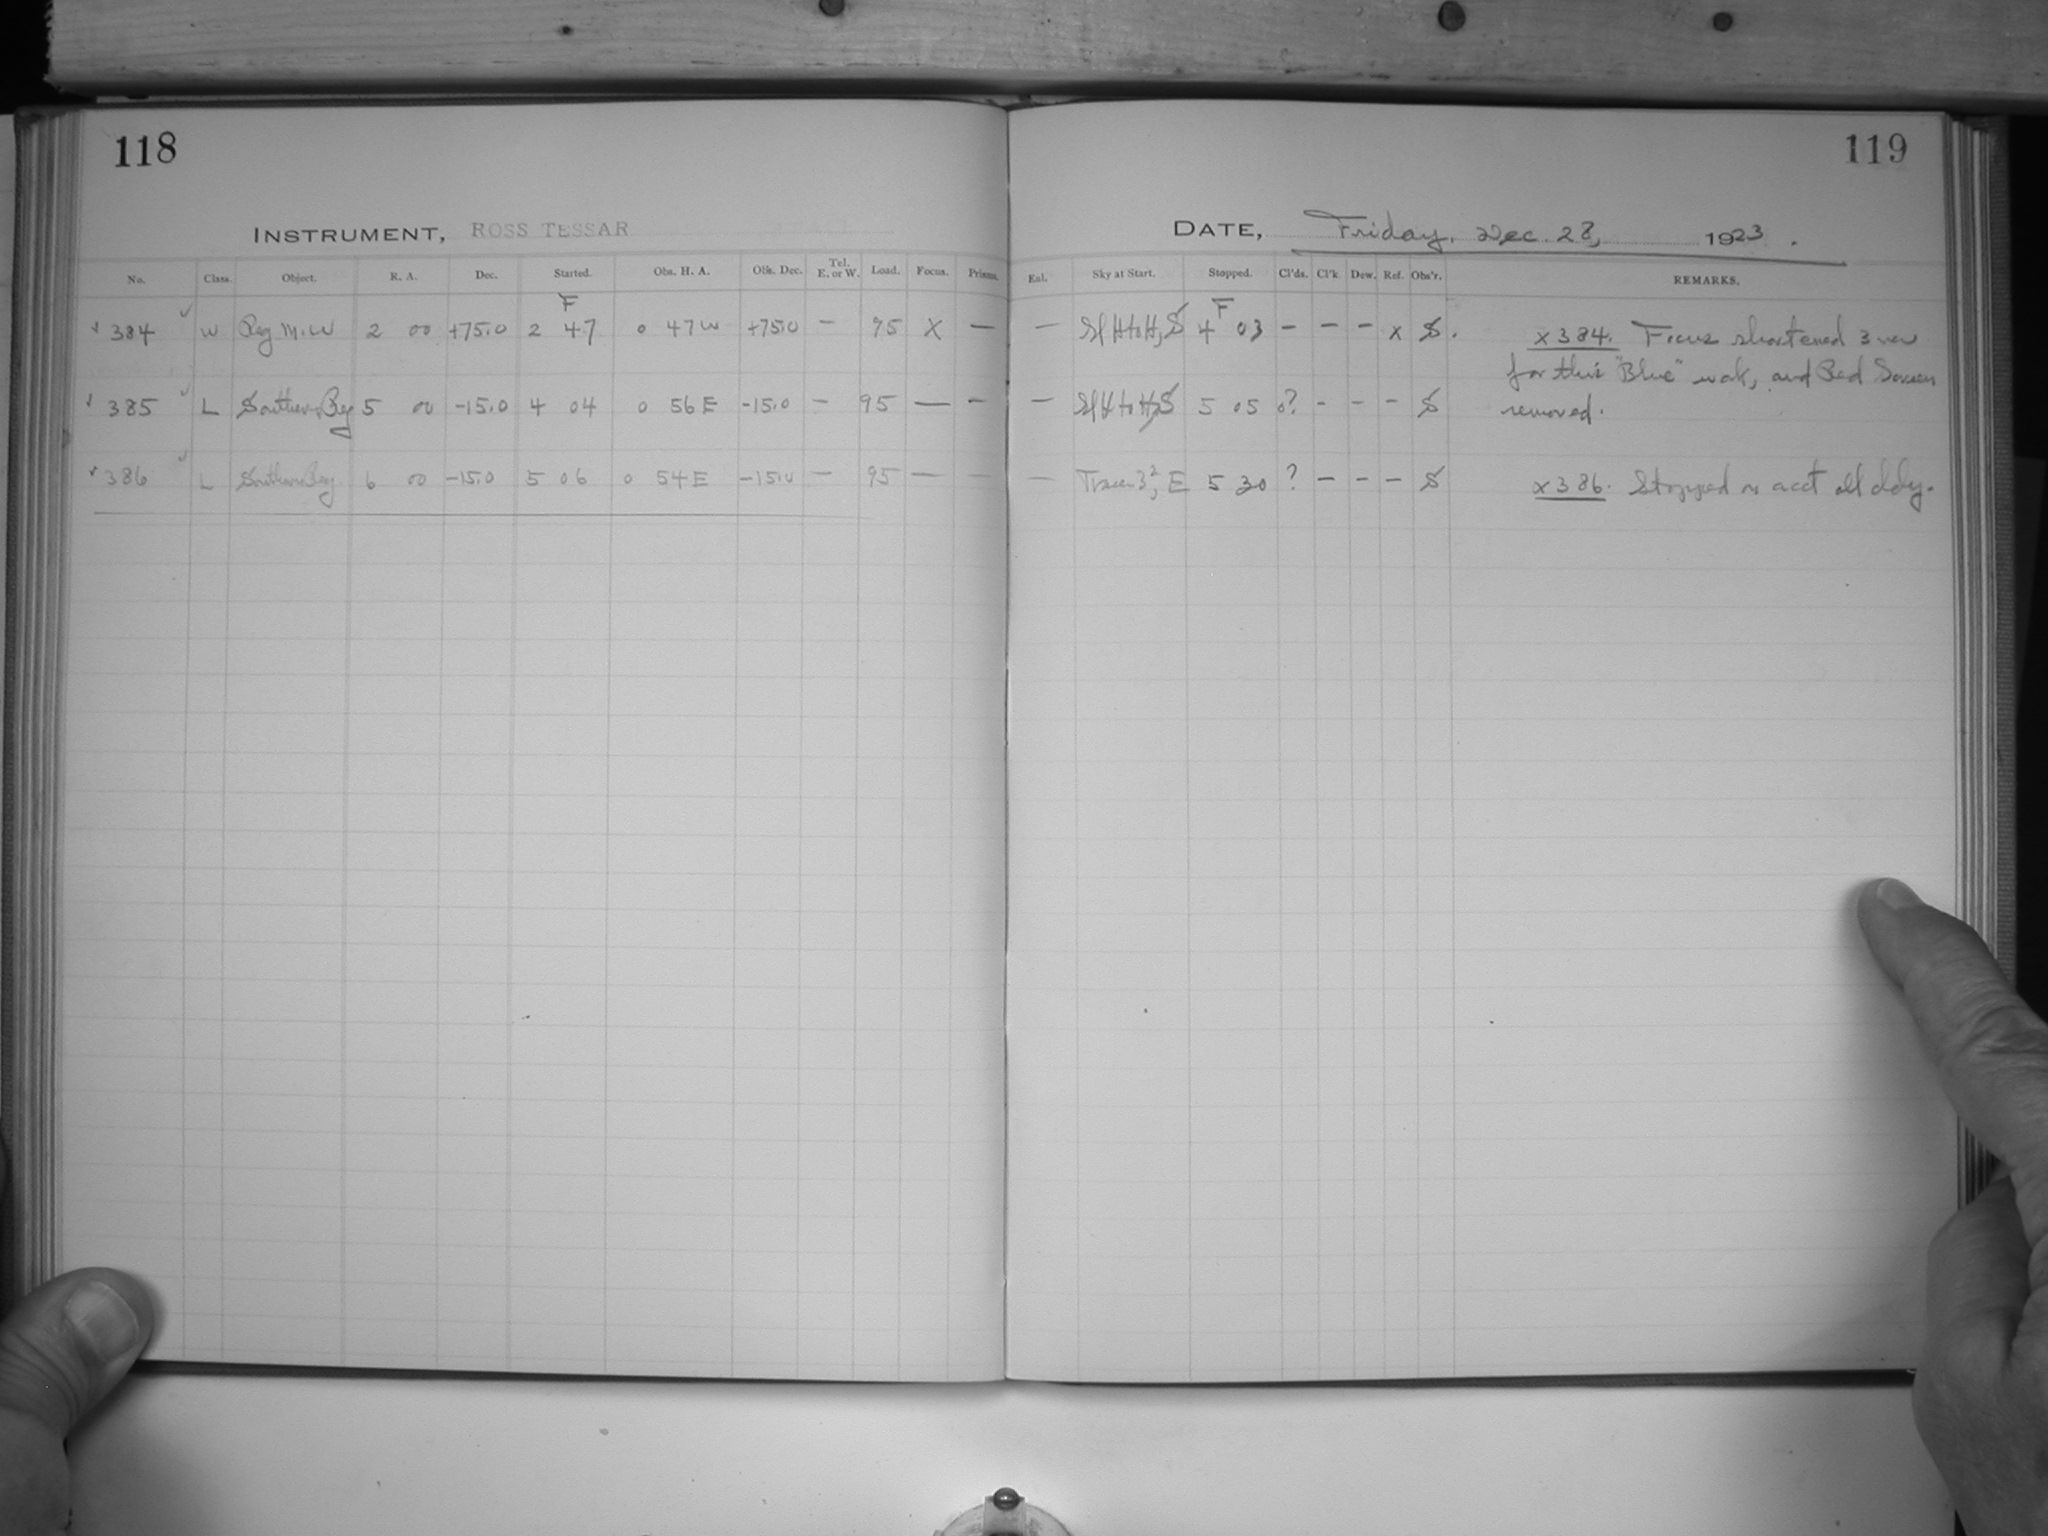 118
119
INSTRUMENT, ROSS TESSAR
DATE, Friday, Dec. 28, 1923.
No. Class. Object. R. A. Dec. Started. Obs. H. A. Obs. Dec. Tel. E. or W. Load. Focus. Prisms. Eul. Sky at Start. Stopped. Cl'ds. Cl'k. Dew. Ref. Obs'r. REMARKS.
F F
384 W Reg M.W 2 00 +75.0 2 47 0 47 W +75.0 – 95 X – – H to H, S 4 03 – – – x S. x384. Focus shortened 3
for this "Blue" work, and Red Screen
385 L Southern Reg 5 00 -15.0 4 04 0 56 E -15.0 – 95 – – – H to H, S 5 05 0? - - - S removed.
386 L Southern Reg 6 00 -15.0 5 06 0 54 E -15.0 – 95 – – – 3², E 5 30 ? – – – S x386. Stopped on acct of cldy.